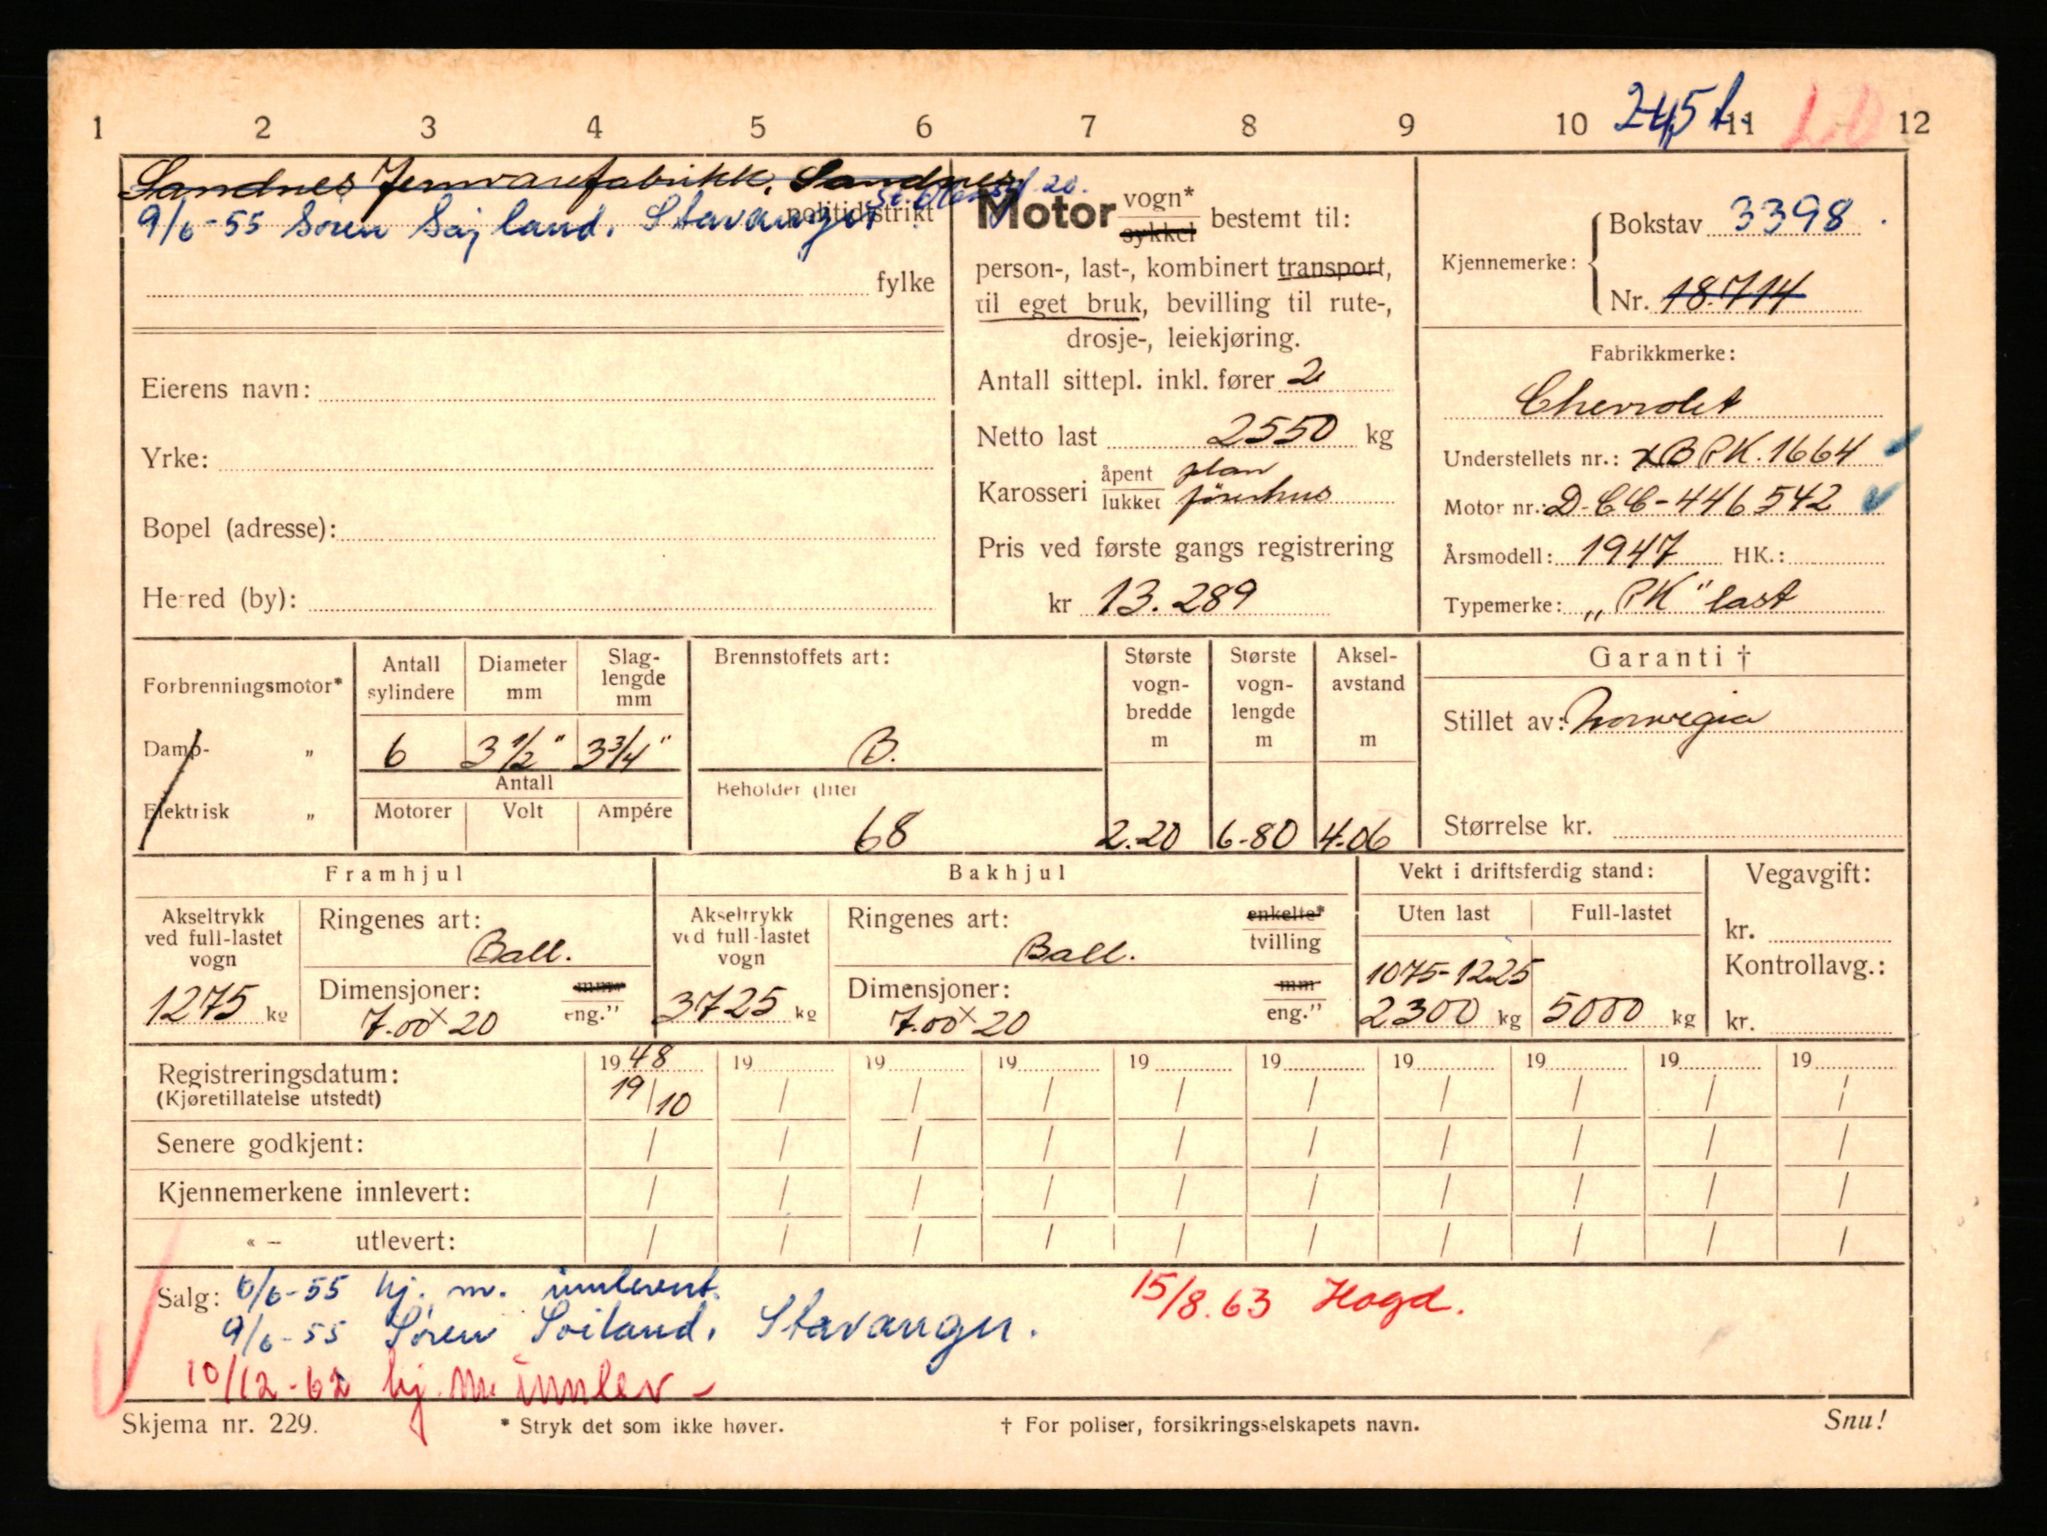 1 2 3 4 5 6 7 8 9 10 11 12
Sandnes Jernvarefabrikk. Sandnes
politidistrikt
9/6-55 Sören Søyland. Stavanger
fylke
Eierens navn:
Yrke:
Bopel (adresse):
Herred (by):
Motor vogn* sykkel bestemt til:
person-, last-, kombinert transport,
til eget bruk, bevilling til rute-,
drosje-, leiekjøring.
Antall sittepl. inkl. fører 2
Netto last 2550 kg
Karosseri åpent plan
lukket førerhus
Pris ved første gangs registrering
kr 13.289
Kjennemerke:
Bokstav 3398
Nr. 18.714
Fabrikkmerke:
Chevrolet
Understellets nr.: xB PK. 1664
Motor nr.: D-CC-446542
Årsmodell: 1947 HK.:
Typemerke: „PK" last
Forbrenningsmotor*
Damp- „
Elektrisk „
Antall sylindere 6
Diameter mm 3 1/2"
Slag-lengde mm 3 3/4"
Antall
Motorer Volt Ampére
Brennstoffets art:
B.
Beholder (liter
68
Største vogn-bredde m 2.20
Største vogn-lengde m 6-80
Aksel-avstand m 4.06
Garanti †
Stillet av: Norwegia
Størrelse kr.
Framhjul
Akseltrykk ved full-lastet vogn
1275 kg
Ringenes art:
Ball.
Dimensjoner: mm eng."
7.00 x 20
Bakhjul
Akseltrykk ved full-lastet vogn
3725 kg
Ringenes art: enkelte* tvilling
Ball.
Dimensjoner: mm eng."
7.00 x 20
Vekt i driftsferdig stand:
Uten last Full-lastet
1075-1225
2300 kg 5000 kg
Vegavgift:
kr.
Kontrollavg.:
kr.
Registreringsdatum: 1948 19 19 19 19 19 19 19 19 19
(Kjøretillatelse utstedt) 19/10 / / / / / / / / /
Senere godkjent: / / / / / / / / / /
Kjennemerkene innlevert: / / / / / / / / / /
« – utlevert: / / / / / / / / / /
Salg: 6/6-55 kj. m. innlevert.
15/8.63 Hogd.
9/6-55 Sören Soiland. Stavanger.
10/12-62 kj. m. innlev-
Skjema nr. 229. * Stryk det som ikke høver. † For poliser, forsikringsselskapets navn. Snu!